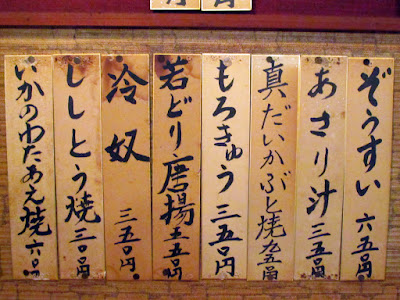 ぞうすい 六五〇円
あさり汁 三五〇円
真だいかぶと焼 九五〇円
もろきゅう 三五〇円
若どり唐揚 五五〇円
冷奴 三五〇円
ししとう焼 三〇〇円
いかのわたあえ焼 六〇〇円